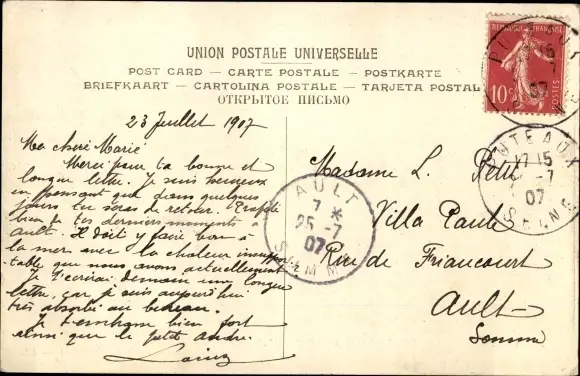 UNION POSTALE UNIVERSELLE
POST CARD — CARTE POSTALE — POSTKARTE
BRIEFKAART — CARTOLINA POSTALE — TARJETA POSTAL
ОТКРЫТОЕ ПИСЬМО
REPUBLIQUE FRANÇAISE
10c
POSTES
PUTEAUX
17 15
-7
07
SEINE
AULT
7 *
25 -7
07
SOMME
23 Juillet 1907
Ma chère Marie
Merci pour ta bonne et
longue lettre. Je suis heureux
en pensant que dans quelques
jours tu seras de retour. Profite
bien de tes derniers moments
Ault. Il doit y faire bon à
la mer avec la chaleur insuppor-
table que nous avons actuellement
Je t'écrirai demain une longue
lettre, car je suis aujourd'hui
très absorbé au bureau.
Je t'embrasse bien fort
ainsi que le petit André.
Madame L. Petit
Villa Paule
Rue de Friaucourt
Ault
Somme